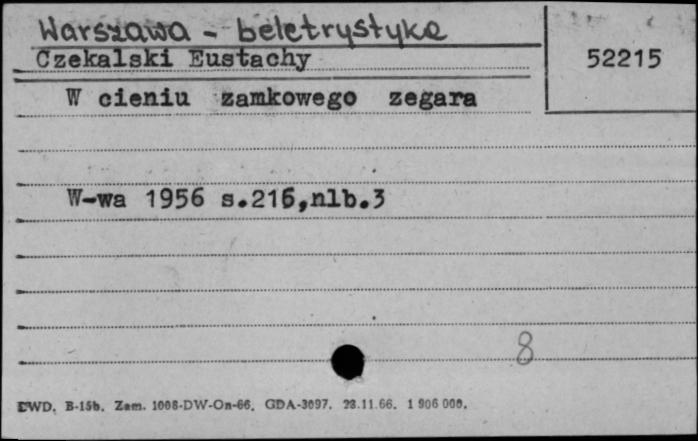 Warszawa - beletrystyka
Czekalski Eustachy
52215
W cieniu zamkowego zegara
W-wa 1956 s.216,nlb.3
8
DWD. B-15b. Zam. 1008-DW-On-66. GDA-3097. 28.11.66. 1 906 000.